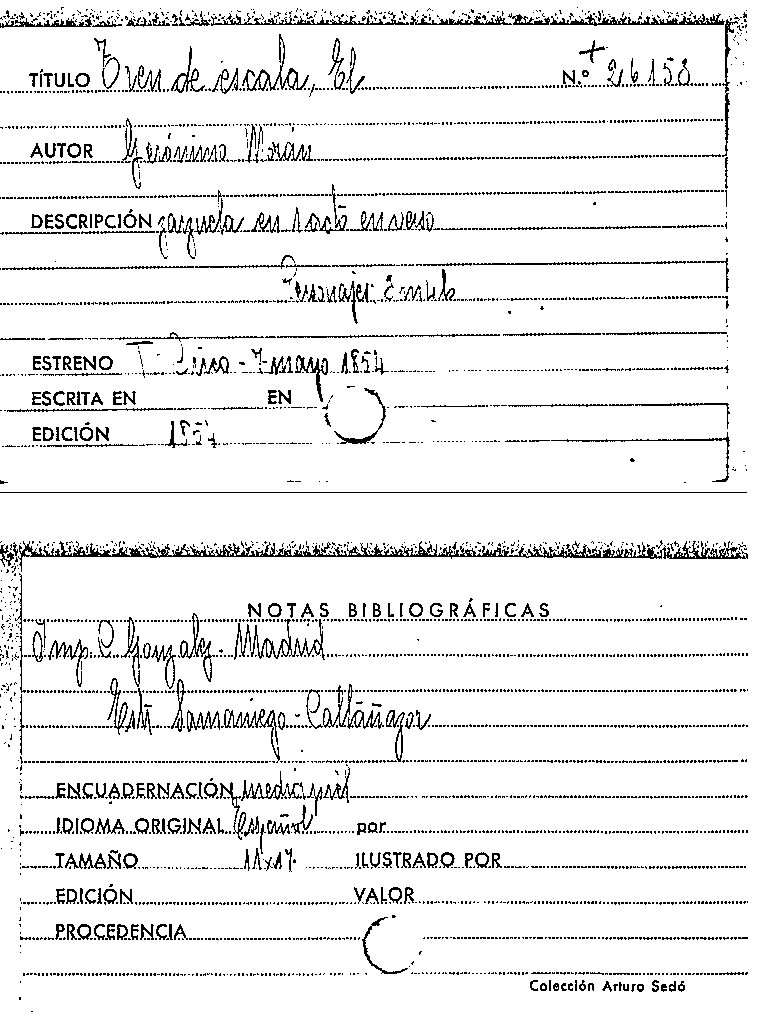 TÍTULO Tren de escala, El N.º + 26158
AUTOR Gerónimo Morán
DESCRIPCIÓN zarzuela en 1 acto en verso
Personajes
ESTRENO T. Circo - 7 mayo 1854
ESCRITA EN EN
EDICIÓN 1854
NOTAS BIBLIOGRÁFICAS
Imp. C. Gonzalez. Madrid
Samaniego - Caltañazor
ENCUADERNACIÓN media piel
IDIOMA ORIGINAL Español por
TAMAÑO 11x17 ILUSTRADO POR
EDICIÓN VALOR
PROCEDENCIA
Colección Arturo Sedó